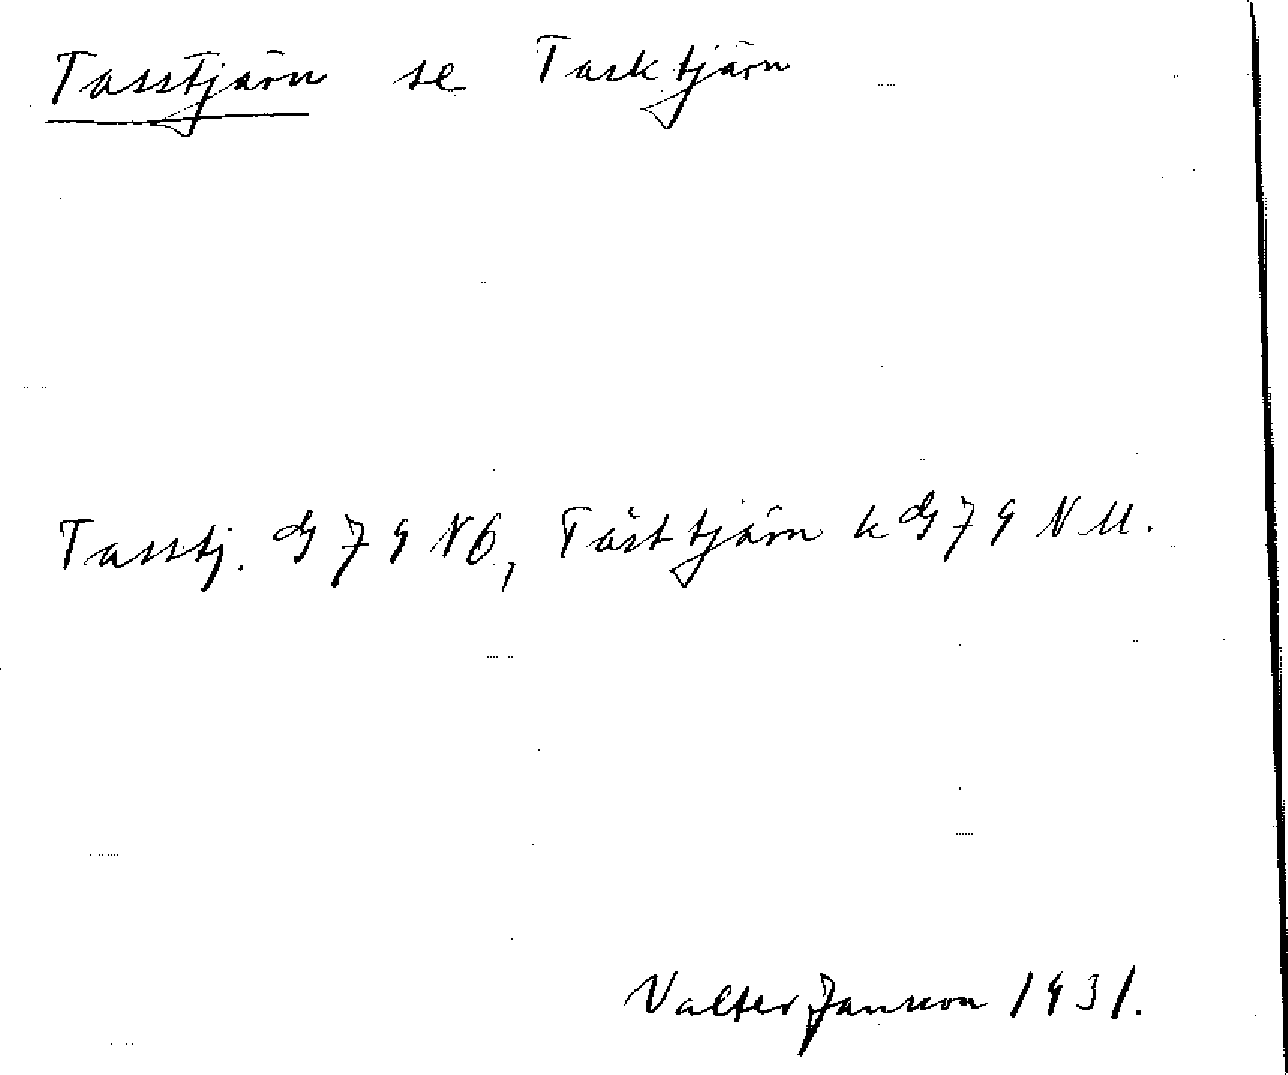 Tasstjärn se Tasktjärn
Tasstj. G 79 NO, Tästtjärn k G 79 NU.
Valter Jansson 1931.